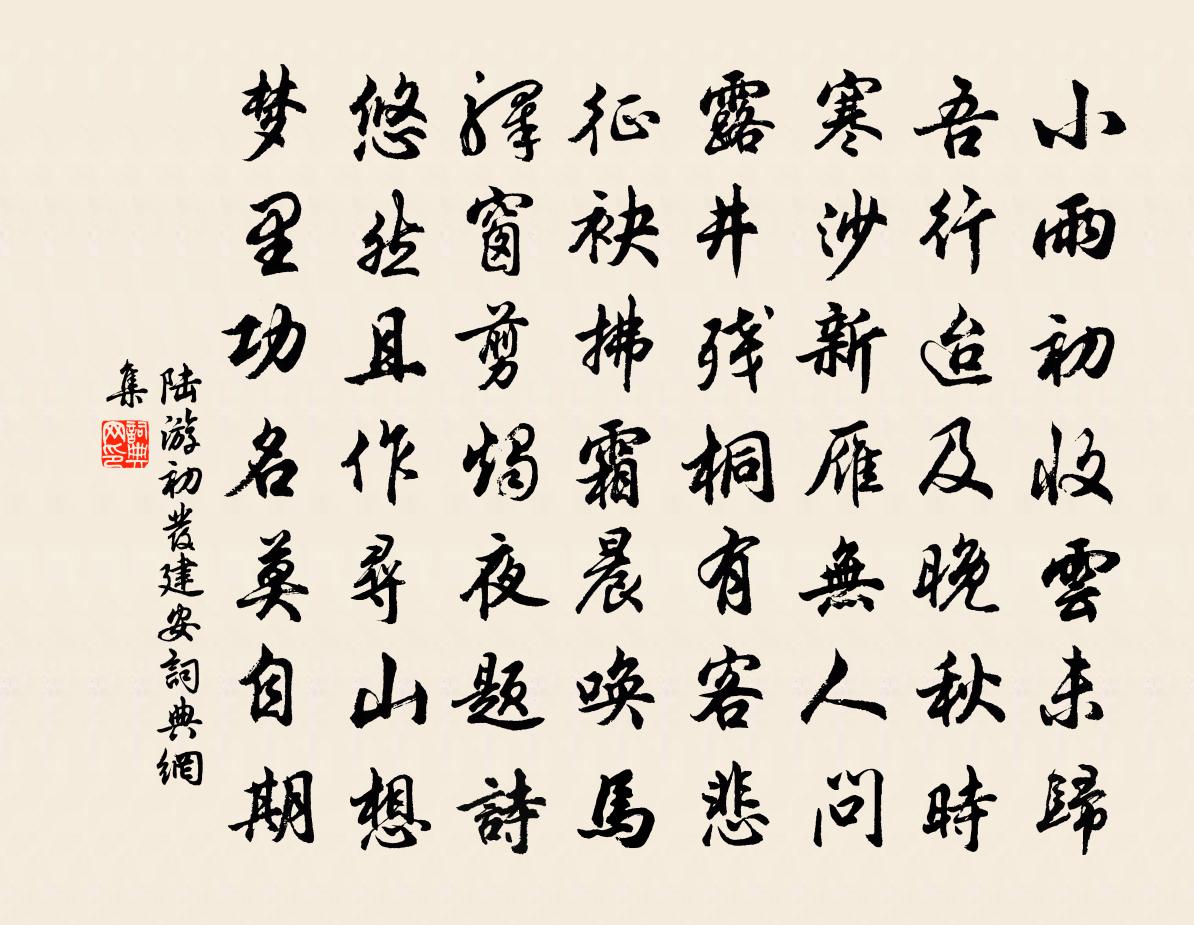 小雨初收雲未歸
吾行迨及晚秋時
寒沙新雁無人問
露井残桐有客悲
征袂拂霜晨唤馬
驛窗剪燭夜题詩
悠然且作尋山想
梦里功名莫自期
陆游初發建安詞典網
集
詞典網印